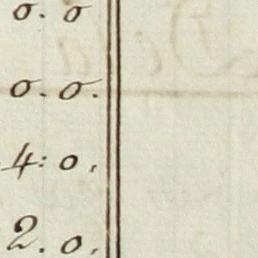 0. 0
0. 0.
4: 0,
2. 0,